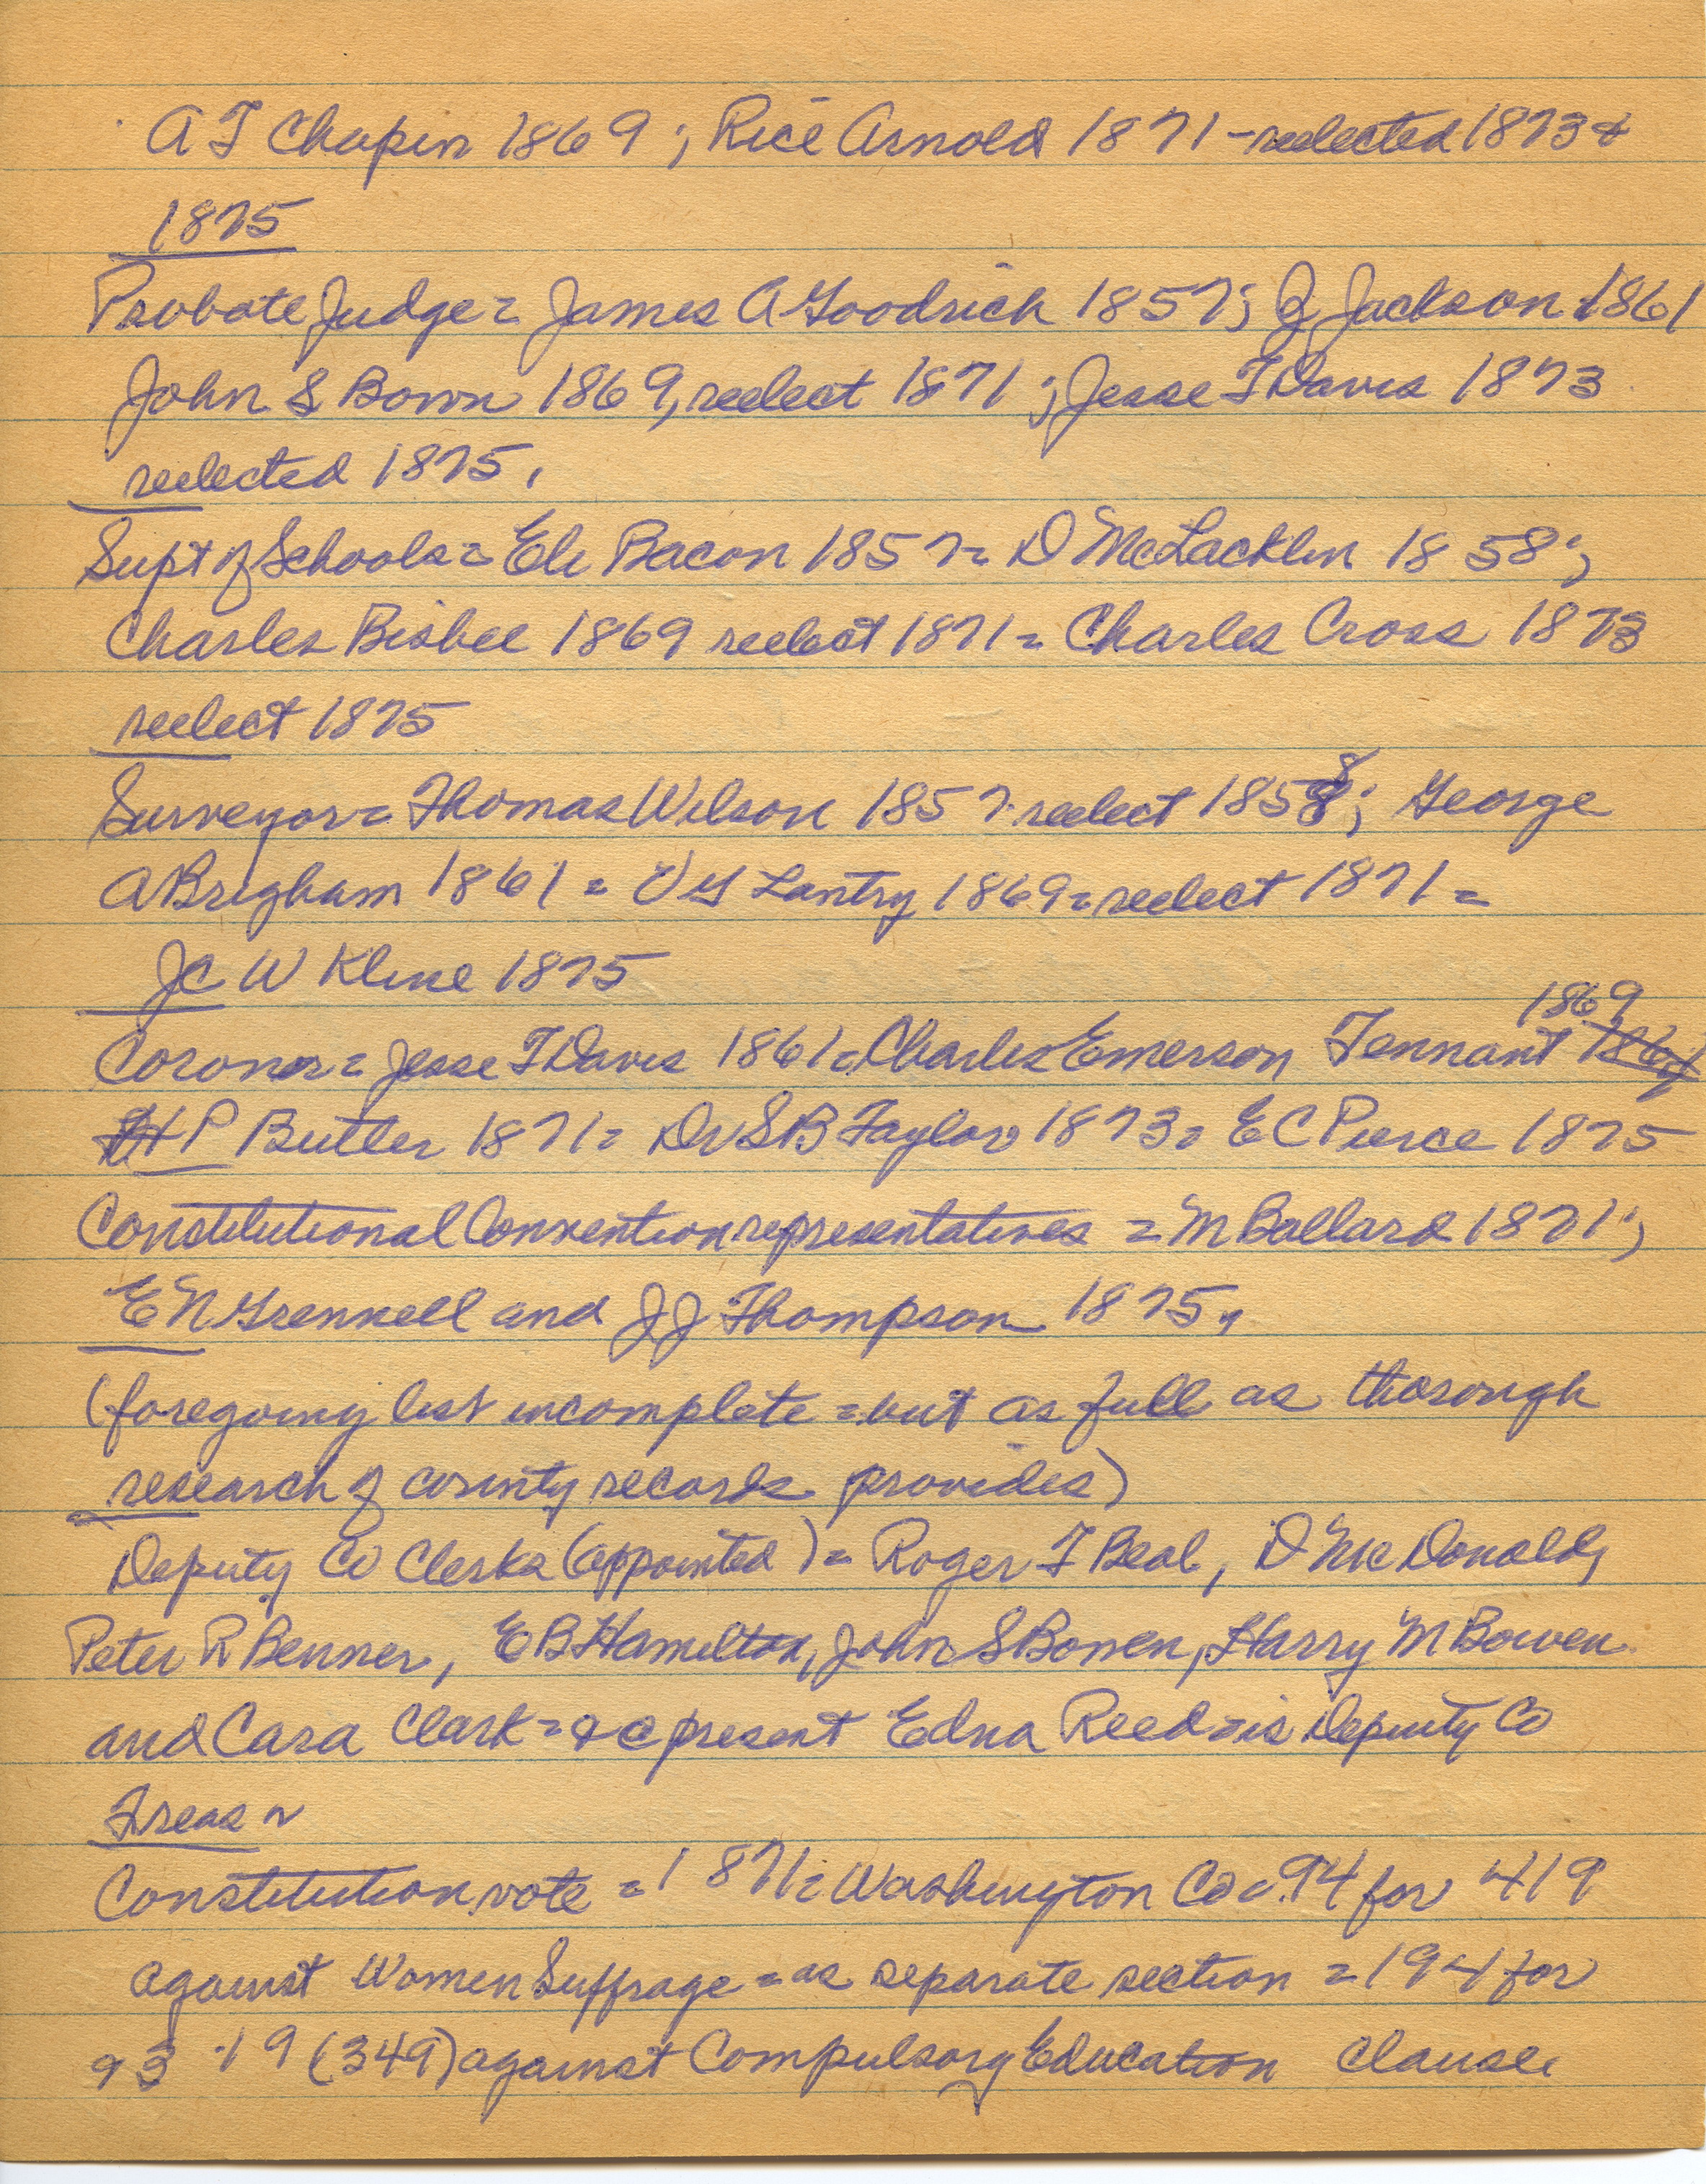 A T Chapin 1869; Rice Arnold 1871-reelected 1873 &
1875
Probate Judge = James A Goodrich 1857; Z Jackson 1861
John S Bowen 1869, reelect 1871; Jesse T Davis 1873
reelected 1875.
Supt of Schools = Eli Bacon 1857 = D McLacklin 1858;
Charles Bisbee 1869 reelect 1871 = Charles Cross 1873
reelect 1875
Surveyor = Thomas Wilson 1857 reelect 1858; George
A Brigham 1861 = V G Lantry 1869 = reelect 1871 =
J C W Kline 1875
Coroner = Jesse T Davis 1861 = Charles Emerson Tennant 1869
H P Butler 1871 = Dr S B Taylor 1873 = E C Pierce 1875
Constitutional Convention representatives = M Ballard 1871;
E N Grennell and J J Thompson 1875.
(foregoing list incomplete = but as full as thorough
research of county records provides)
Deputy Co Clerks (appointed) = Roger T Beal, D McDonald,
Peter R Benner, E B Hamilton, John S Bowen, Harry M Bowen
and Cara Clark = present Edna Reed = is Deputy Co
Treas
Constitution vote = 1871 = Washington Co = 94 for 419
against Women Suffrage = as separate section = 194 for
(349) against Compulsory Education Clause